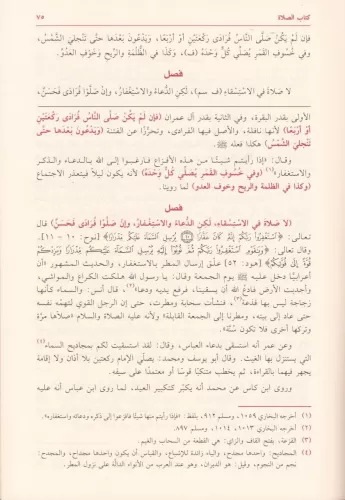 كتاب الصلاة
٧٥
فإن لم يكن صلى الناس فرادى ركعتين أو أربعا، ويدعون بعدها حتى تنجلي الشمس،
وفي خسوف القمر يصلي كل وحده (ف)، وكذا في الظلمة والريح وخوف العدو.
فصل
لا صلاة في الاستسقاء (ف سم)، لكن الدعاء والاستغفار، وإن صلوا فرادى فحسن،
الأولى بقدر البقرة، وفي الثانية بقدر آل عمران (فإن لم يكن صلى الناس فرادى ركعتين
أو أربعا) لأنها نافلة، والأصل فيها الفرادى، وتحرزا عن الفتنة (ويدعون بعدها حتى
تنجلي الشمس) هكذا فعله ﷺ.
وقال: «إذا رأيتم شيئا من هذه الأفزاع فارغبوا إلى الله بالدعاء والذكر
والاستغفار»(١) (وفي خسوف القمر يصلي كل وحده) لأنه يكون ليلا فيتعذر الاجتماع
(وكذا في الظلمة والريح وخوف العدو) لما روينا.
فصل
(لا صلاة في الاستسقاء، لكن الدعاء والاستغفار، وإن صلوا فرادى فحسن) قال
تعالى: ﴿استغفروا ربكم إنه كان غفارا ۝ يرسل السماء عليكم مدرارا﴾ [نوح: ١٠ - ١١].
وقال تعالى: ﴿استغفروا ربكم ثم توبوا إليه يرسل السماء عليكم مدرارا ويزدكم
قوة إلى قوتكم﴾ [هود: ٥٢] علق إرسال المطر بالاستغفار، والحديث المشهور «أن
أعرابيا دخل عليه ﷺ يوم الجمعة وقال: يا رسول الله هلكت الكراع والمواشي،
وأجدبت الأرض فادع الله أن يسقينا، فرفع يديه ودعا»(٢)، قال أنس: والسماء كأنها
زجاجة ليس بها قزعة(٣)، فنشأت سحابة ومطرت، حتى إن الرجل القوي لتهمه نفسه
حتى عاد إلى بيته، ومطرنا إلى الجمعة القابلة؛ ولأنه عليه الصلاة والسلام «صلاها مرة
وتركها أخرى فلا تكون سنة».
وعن عمر أنه استسقى بدعاء العباس، وقال: لقد استسقيت لكم بمجاديح السماء(٤)
التي يستنزل بها الغيث. وقال أبو يوسف ومحمد: يصلي الإمام ركعتين بلا أذان ولا إقامة
يجهر فيهما بالقراءة، ثم يخطب متنكبا قوسا أو معتمدا على سيفه.
وروى ابن كاس عن محمد أنه يكبر كتكبير العيد، لما روى ابن عباس أنه عليه
(١) أخرجه البخاري ١٠٥٩، ومسلم ٩١٢، بلفظ: «فإذا رأيتم منها شيئا فافزعوا إلى ذكره ودعائه واستغفاره».
(٢) أخرجه البخاري ١٠١٣، ١٠١٤، ومسلم ٨٩٧.
(٣) القزعة، بفتح القاف والزاي: هي القطعة من السحاب والغيم.
(٤) المجاديح: واحدها مجدح، والياء زائدة للإشباع، والقياس أن يكون واحدها مجداح، والمجدح:
نجم من النجوم، وقيل: هو الدبران، وهو عند العرب من الأنواء الدالة على نزول المطر.